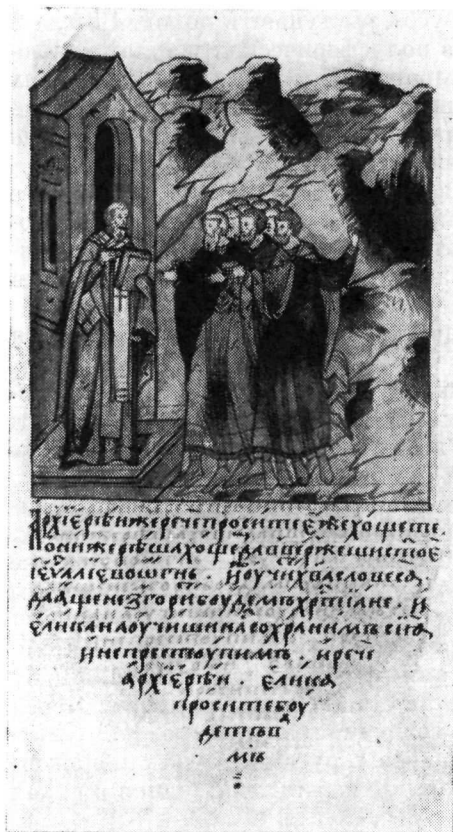 Архїерѣи же рече просите еже хощете
они же рѣша хоще да ввержеши стое
еѵⷢалїе въ огнь . и оучиⷯ хва словеса
да аще не згори боудемъ хрⷭтїане . и
елика наоучиши на сохранимъ сиꙗ
и не престоупимъ . и рече
архїерѣи . елика
просите боу
деть в
мъ